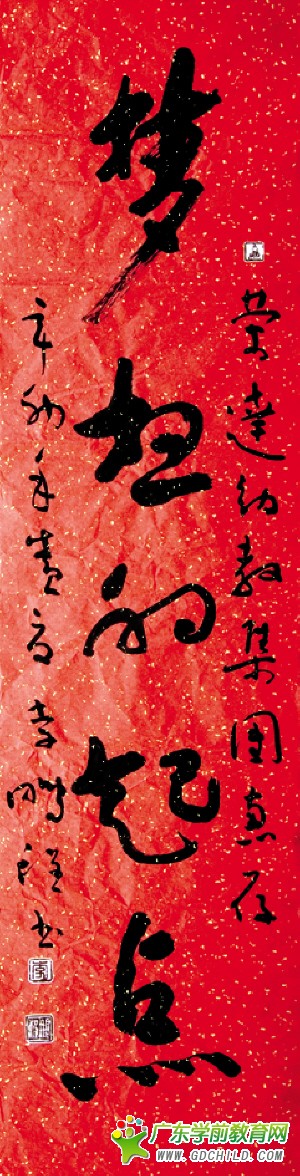 荣達幼教集团惠存
梦想的起点
辛卯年李鹏程书
广东学前教育网
WWW.GDCHILD.COM